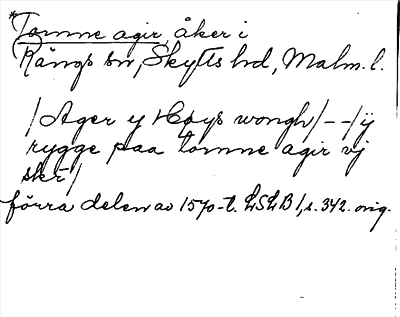 *Tomme agir, åker i
Rängs sn, Skytts hd, Malm. l.
/Ager y Høys wongh/--/ij
rygge paa tomme agir vj
skr/
förra delen av 1570-t. LSLB 1, s. 342. orig.